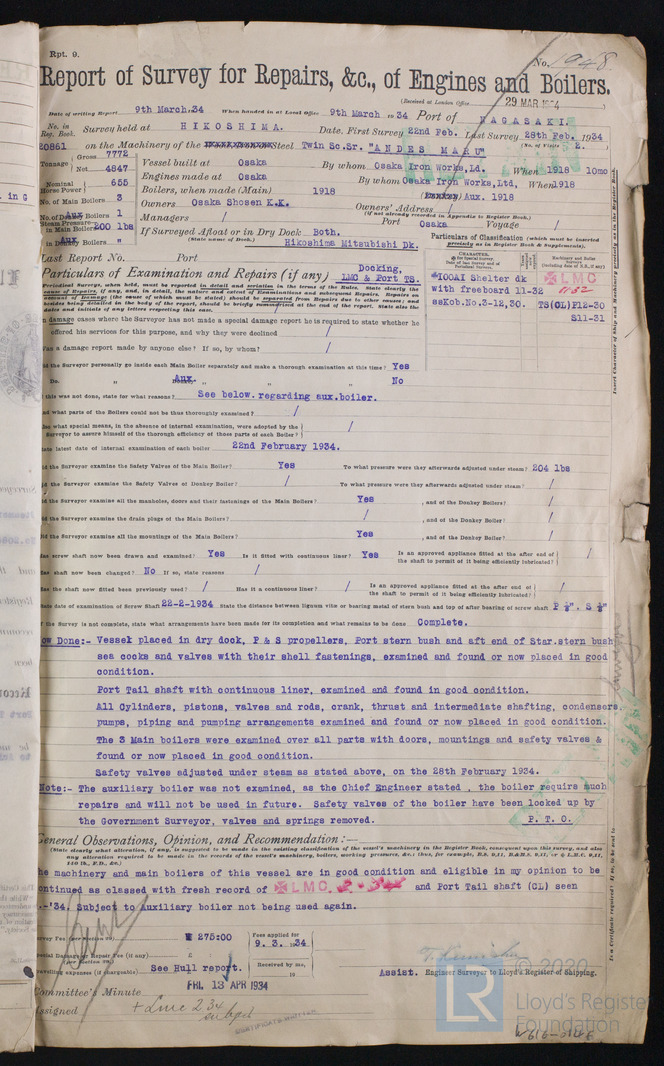 Rpt. 9.
No. 1948
Report of Survey for Repairs, &c., of Engines and Boilers.
(Received at London Office 29 MAR 1934)
Date of writing Report 9th March.34 When handed in at Local Office 9th March 1934 Port of NAGASAKI.
No. in Reg. Book. Survey held at HIKOSHIMA. Date, First Survey 22nd Feb. Last Survey 28th Feb. 1934
20861 on the Machinery of the Steel Twin Sc.Sr. "ANDES MARU" (No. of Visits 2.
Tonnage Gross 7772 Vessel built at Osaka By whom Osaka Iron Works,Ld. When 1918 10mo
Net 4847
Nominal Horse Power 655 Engines made at Osaka By whom Osaka Iron Works,Ltd, When 1918
No. of Main Boilers 3 Boilers, when made (Main) 1918 Aux. 1918
No. of Aux Boilers 1 Owners Osaka Shosen K.K. Owners' Address /
(if not already recorded in Appendix to Register Book.)
Steam Pressure in Main Boilers 200 lbs Managers / Port Osaka Voyage /
in Aux Boilers " If Surveyed Afloat or in Dry Dock Both.
(State name of Dock.) Hikoshima Mitsubishi Dk.
Last Report No. Port
Particulars of Classification (which must be inserted precisely as in Register Book & Supplements).
Particulars of Examination and Repairs (if any) Docking, LMC & Port TS.
*100A1 Shelter dk
with freeboard 11-32
ssKob.No.3-12,30.
LMC
11-32
TS(CL)P12-30
S11-31
Periodical Surveys, when held, must be reported in detail and seriatim in the terms of the Rules. State clearly the cause of Repairs, if any, and, in detail, the nature and extent of Examinations and subsequent Repairs. Repairs on account of Damage (the cause of which must be stated) should be separated from Repairs due to other causes; and besides being detailed in the body of the report, should be briefly summarised at the end of the report. State also the dates and initials of any letters respecting this case. /
In damage cases where the Surveyor has not made a special damage report he is required to state whether he
offered his services for this purpose, and why they were declined /
Was a damage report made by anyone else? If so, by whom? /
Did the Surveyor personally go inside each Main Boiler separately and make a thorough examination at this time? Yes
Do. " Aux. " " " No
If this was not done, state for what reasons? See below. regarding aux.boiler.
And what parts of the Boilers could not be thus thoroughly examined? /
Also what special means, in the absence of internal examination, were adopted by the
Surveyor to assure himself of the thorough efficiency of those parts of each Boiler? /
State latest date of internal examination of each boiler 22nd February 1934.
Did the Surveyor examine the Safety Valves of the Main Boiler? Yes To what pressure were they afterwards adjusted under steam? 204 lbs
Did the Surveyor examine the Safety Valves of Donkey Boiler? / To what pressure were they afterwards adjusted under steam? /
Did the Surveyor examine all the manholes, doors and their fastenings of the Main Boilers? Yes , and of the Donkey Boilers? /
Did the Surveyor examine the drain plugs of the Main Boilers? / , and of the Donkey Boiler? /
Did the Surveyor examine all the mountings of the Main Boilers? Yes , and of the Donkey Boiler? /
Has screw shaft now been drawn and examined? Yes Is it fitted with continuous liner? Yes Is an approved appliance fitted at the after end of the shaft to permit of it being efficiently lubricated? /
Has shaft now been changed? No If so, state reasons /
Has the shaft now fitted been previously used? / Has it a continuous liner? / Is an approved appliance fitted at the after end of the shaft to permit of it being efficiently lubricated? /
State date of examination of Screw Shaft 22-2-1934 State the distance between lignum vitæ or bearing metal of stern bush and top of after bearing of screw shaft
If the Survey is not complete, state what arrangements have been made for its completion and what remains to be done Complete.
Now Done:- Vessel placed in dry dock, P & S propellers, Port stern bush and aft end of Star.stern bush
sea cocks and valves with their shell fastenings, examined and found or now placed in good
condition.
Port Tail shaft with continuous liner, examined and found in good condition.
All Cylinders, pistons, valves and rods, crank, thrust and intermediate shafting, condensers
pumps, piping and pumping arrangements examined and found or now placed in good condition.
The 3 Main boilers were examined over all parts with doors, mountings and safety valves &
found or now placed in good condition.
Safety valves adjusted under steam as stated above, on the 28th February 1934.
Note:- The auxiliary boiler was not examined, as the Chief Engineer stated , the boiler requirs much
repairs and will not be used in future. Safety valves of the boiler have been looked up by
the Government Surveyor, valves and springs removed. P. T. O.
General Observations, Opinion, and Recommendation:—
(State clearly what alteration, if any, is suggested to be made in the existing classification of the vessel's machinery in the Register Book, consequent upon this survey, and also
any alteration required to be made in the records of the vessel's machinery, boilers, working pressures, &c.; thus, for example, B.S. 9,11, B.&M.S. 9,11, or L.M.C. 9,11,
The machinery and main boilers of this vessel are in good condition and eligible in my opinion to be
continued as classed with fresh record of LMC and Port Tail shaft (CL) seen
-'34. Subject to Auxiliary boiler not being used again.
Survey Fee (per Section 29) ¥ 275:00 Fees applied for 9. 3. 1934
Special Damage or Repair Fee (if any) £
(per Section 29.)
Travelling expenses (if chargeable) See Hull report. Received by me, 19
Assist. Engineer Surveyor to Lloyd's Register of Shipping.
Committee's Minute FRI. 13 APR 1934
Assigned + Lmc 2.34 subject
© 2020
LR
Lloyd's Register
Foundation